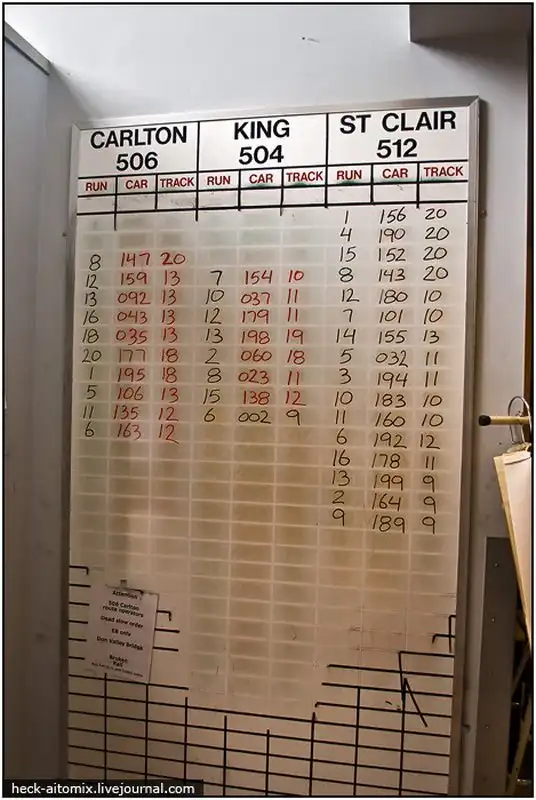 CARLTON KING ST CLAIR
506 504 512
RUN CAR TRACK RUN CAR TRACK RUN CAR TRACK
1 156 20
4 190 20
8 147 20 15 152 20
12 159 13 7 154 10 8 143 20
13 092 13 10 037 11 12 180 10
16 043 13 12 179 11 7 101 10
18 035 13 13 198 19 14 155 13
20 177 18 2 060 18 5 032 11
1 195 18 8 023 11 3 194 11
5 106 13 15 138 12 10 183 10
11 135 12 6 002 9 11 160 10
6 163 12 6 192 12
16 178 11
13 199 9
2 164 9
9 189 9
Attention
506 Carlton
route operators
Dead slow order
EB only
Don Valley Bridge
Broken
Rail
heck-aitomix.livejournal.com